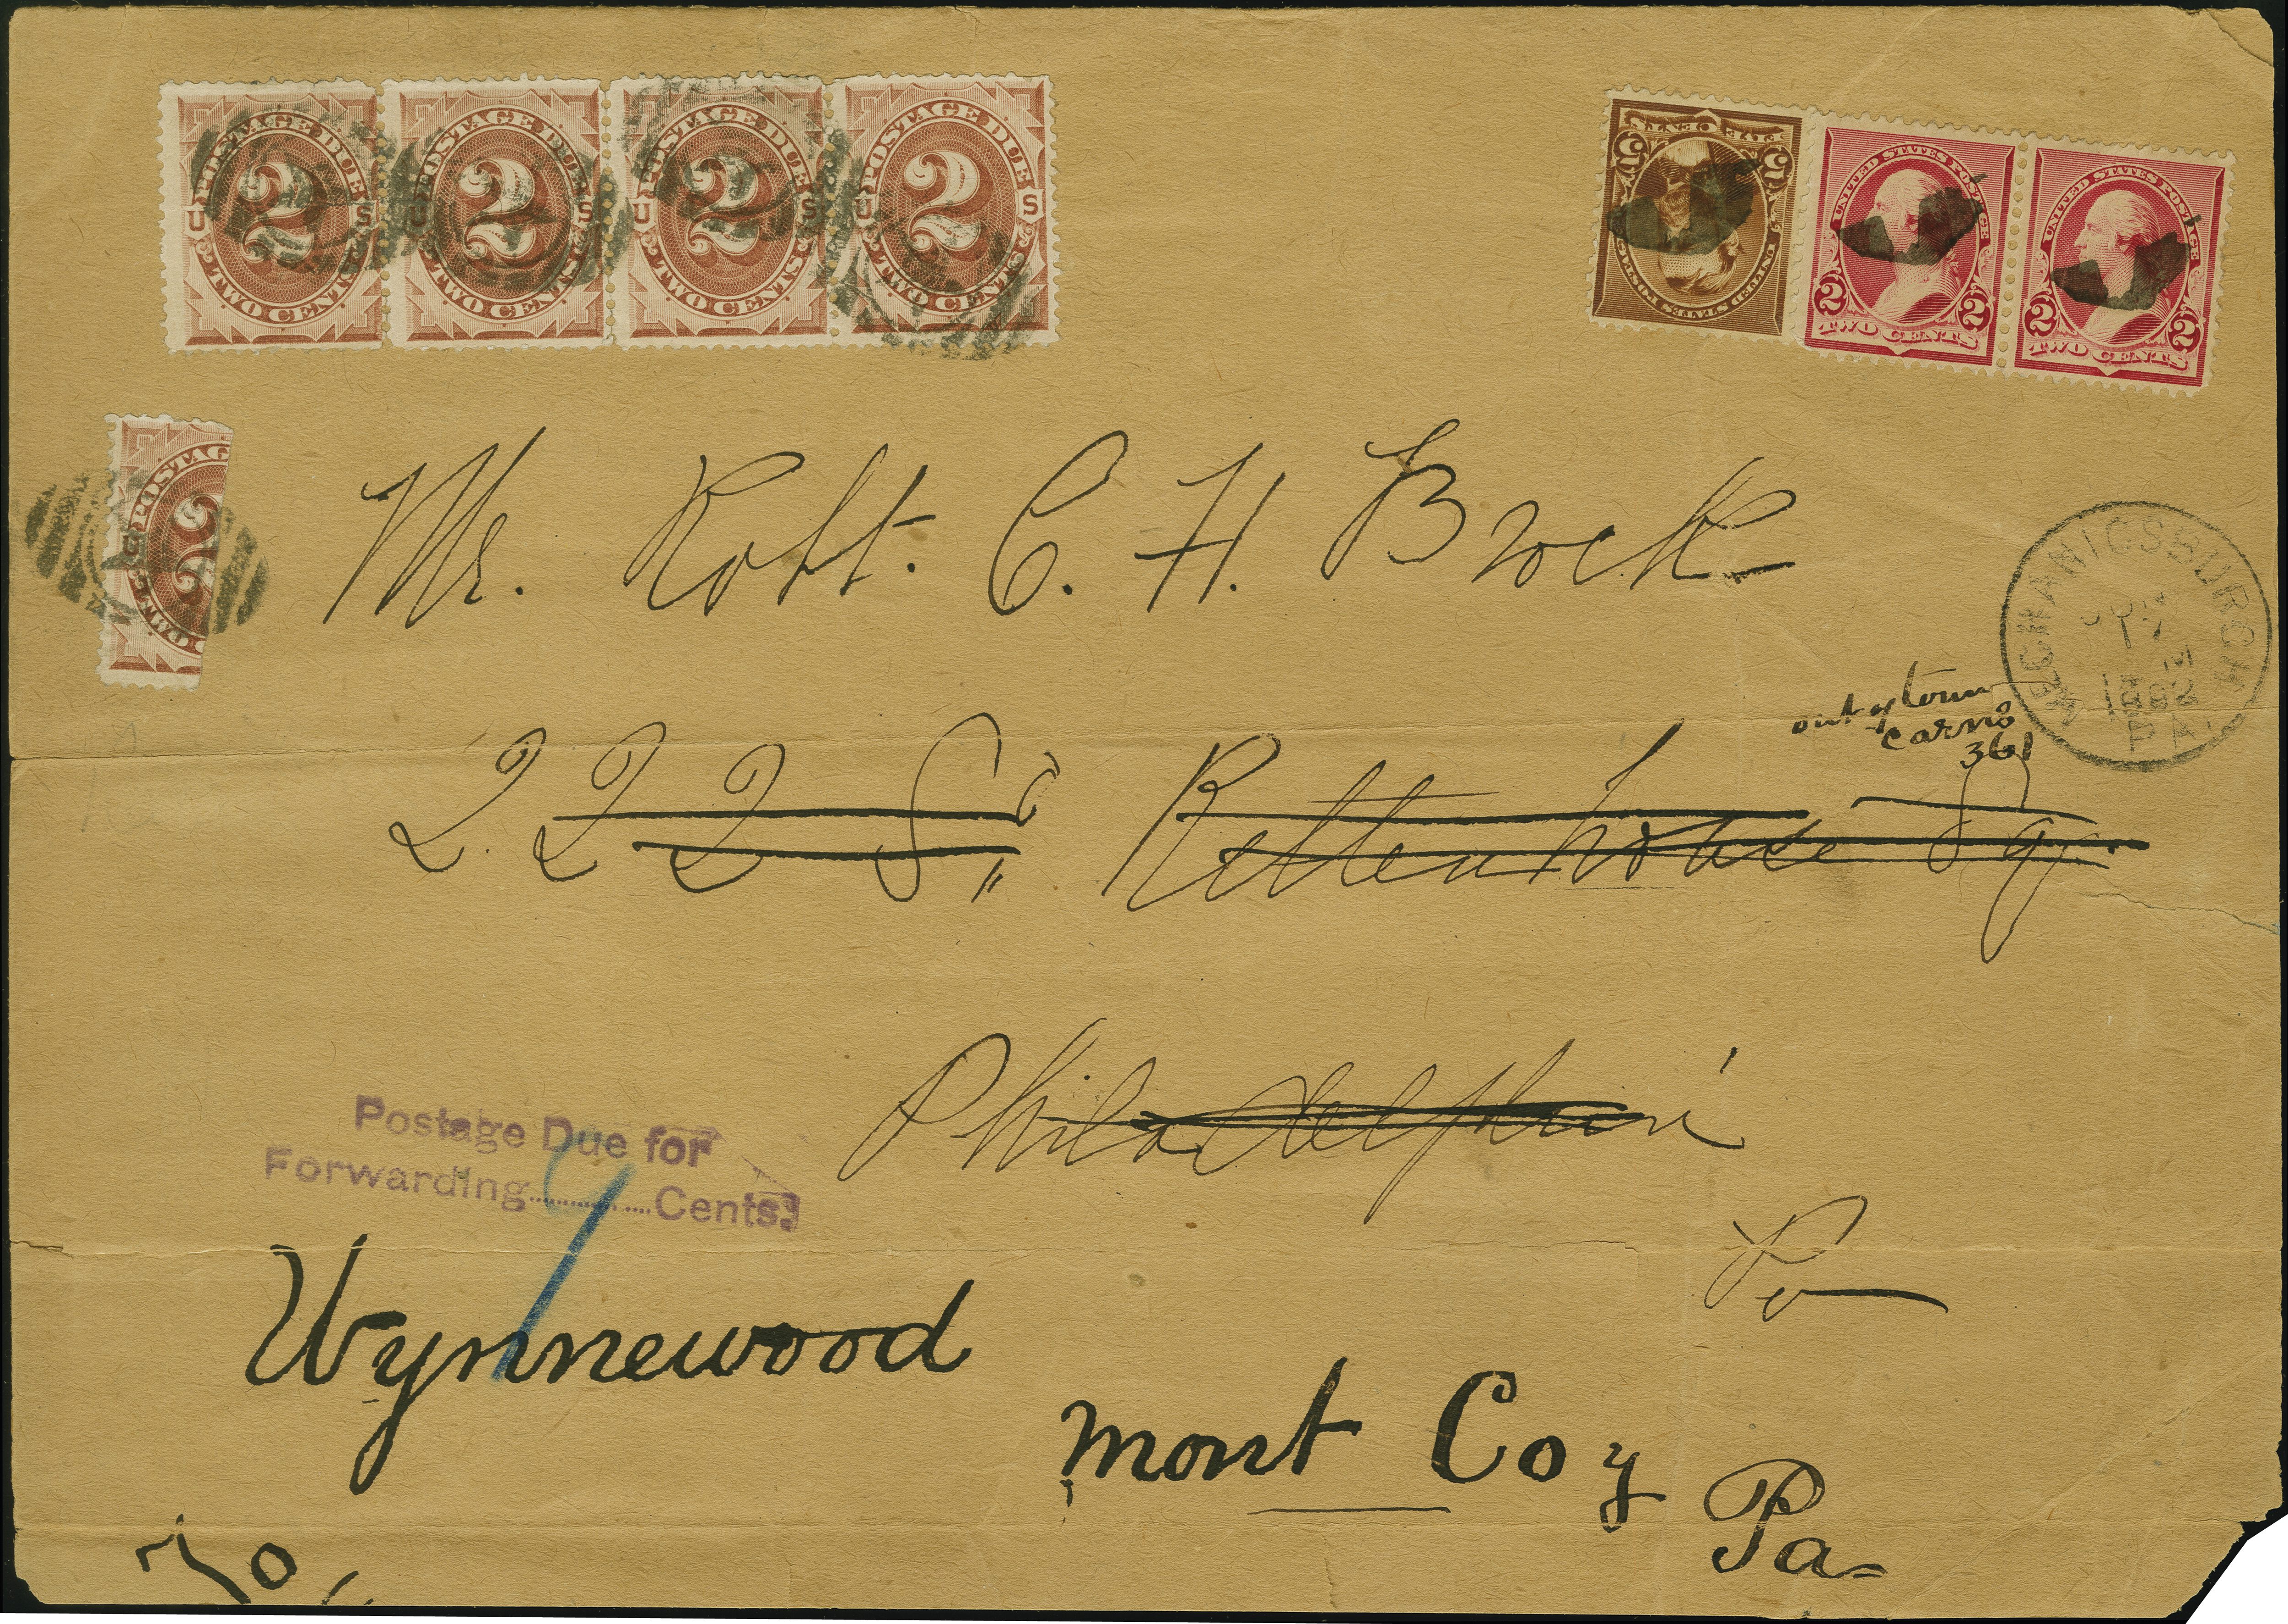 POSTAGE DUE
U 2 S
TWO CENTS
POSTAGE DUE
U 2 S
TWO CENTS
POSTAGE DUE
U 2 S
TWO CENTS
POSTAGE DUE
U 2 S
TWO CENTS
5 5
UNITED STATES POSTAGE
UNITED STATES POSTAGE
2 2
TWO CENTS
UNITED STATES POSTAGE
2 2
TWO CENTS
POSTAG
U 2
TWO
Mr. Robt. C. H. Brock
MECHANICSBURGH
JUN
17
M
1892
PA.
out of town
361
222 So. Rittenhouse Sq.
Philadelphia
Pa
Postage Due for
Forwarding 9 Cents.
Wynnewood
Mont Coy
Pa